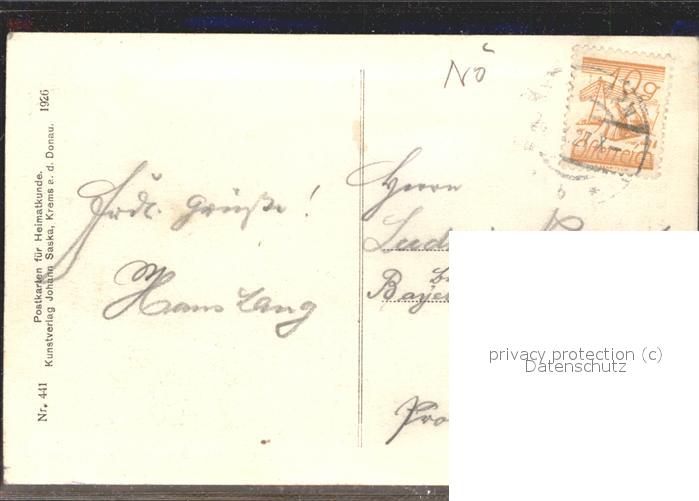 Nr. 441
Postkarten für Heimatkunde.
Kunstverlag Johann Saska, Krems a. d. Donau. 1926
NÖ
10g
Frdl. Grüße!
Hans Lang
Herrn
privacy protection (c)
Datenschutz